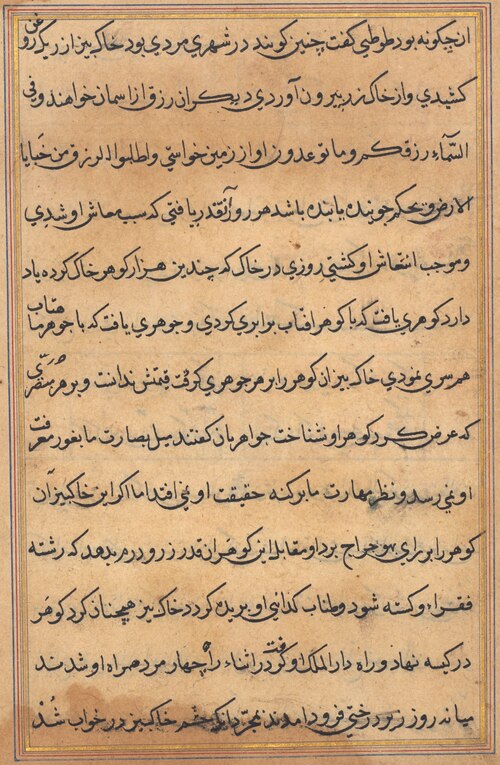 ازچگونه بود طوطی گفت چنین کویند در شهری مردی بود خاک بیز از ریک روغن
کشیدی و از خاک زر بیرون آوردی دیکران رزق از سماز خواهند و فی
السّمآء رزقکم وما توعدون او از زمین خواستی واطلبوا الرزق من خبایا
الارض و بحکم جوینده یابنده باشد هر روز آنقدر یافتی که سبب معاش او شدی
وموجب انتعاش او کشتی روزی در خاک که چندین هزار کوهر خاک کرده یاد
دارد کوهری یافت که با کوهر افتاب برابری کردی و جوهری یافت که با جوهر ماهتاب
همسری نمودی خاک بیز ان کوهر را بر هر جوهری کرفت قیمتش ندانست و بر هر مبصری
که عرض کرد کوهر او نشناخت جواهریان کفتند میل بصارت ما بغور معرفت
او نمی رسد و نظر مهارت ما بر کنه حقیقت او نمی افتد اما اکر این خاکبیز آن
کوهر را بر رای برد او مقابله این کوهر انقدر زر و درم بدهد که رشته
فقر او کسسته شود و طناب کدائی او بریده کردد خاک بیز همچنان کرد کوهر
در کیسه نهاد و راه دار الملک او کرفت در اثناء راه چهار مرد همراه او شدند
میانه روز زیر درختی فرود امدند بمجرّد انکه چشم خاکبیز در خواب شُدْ